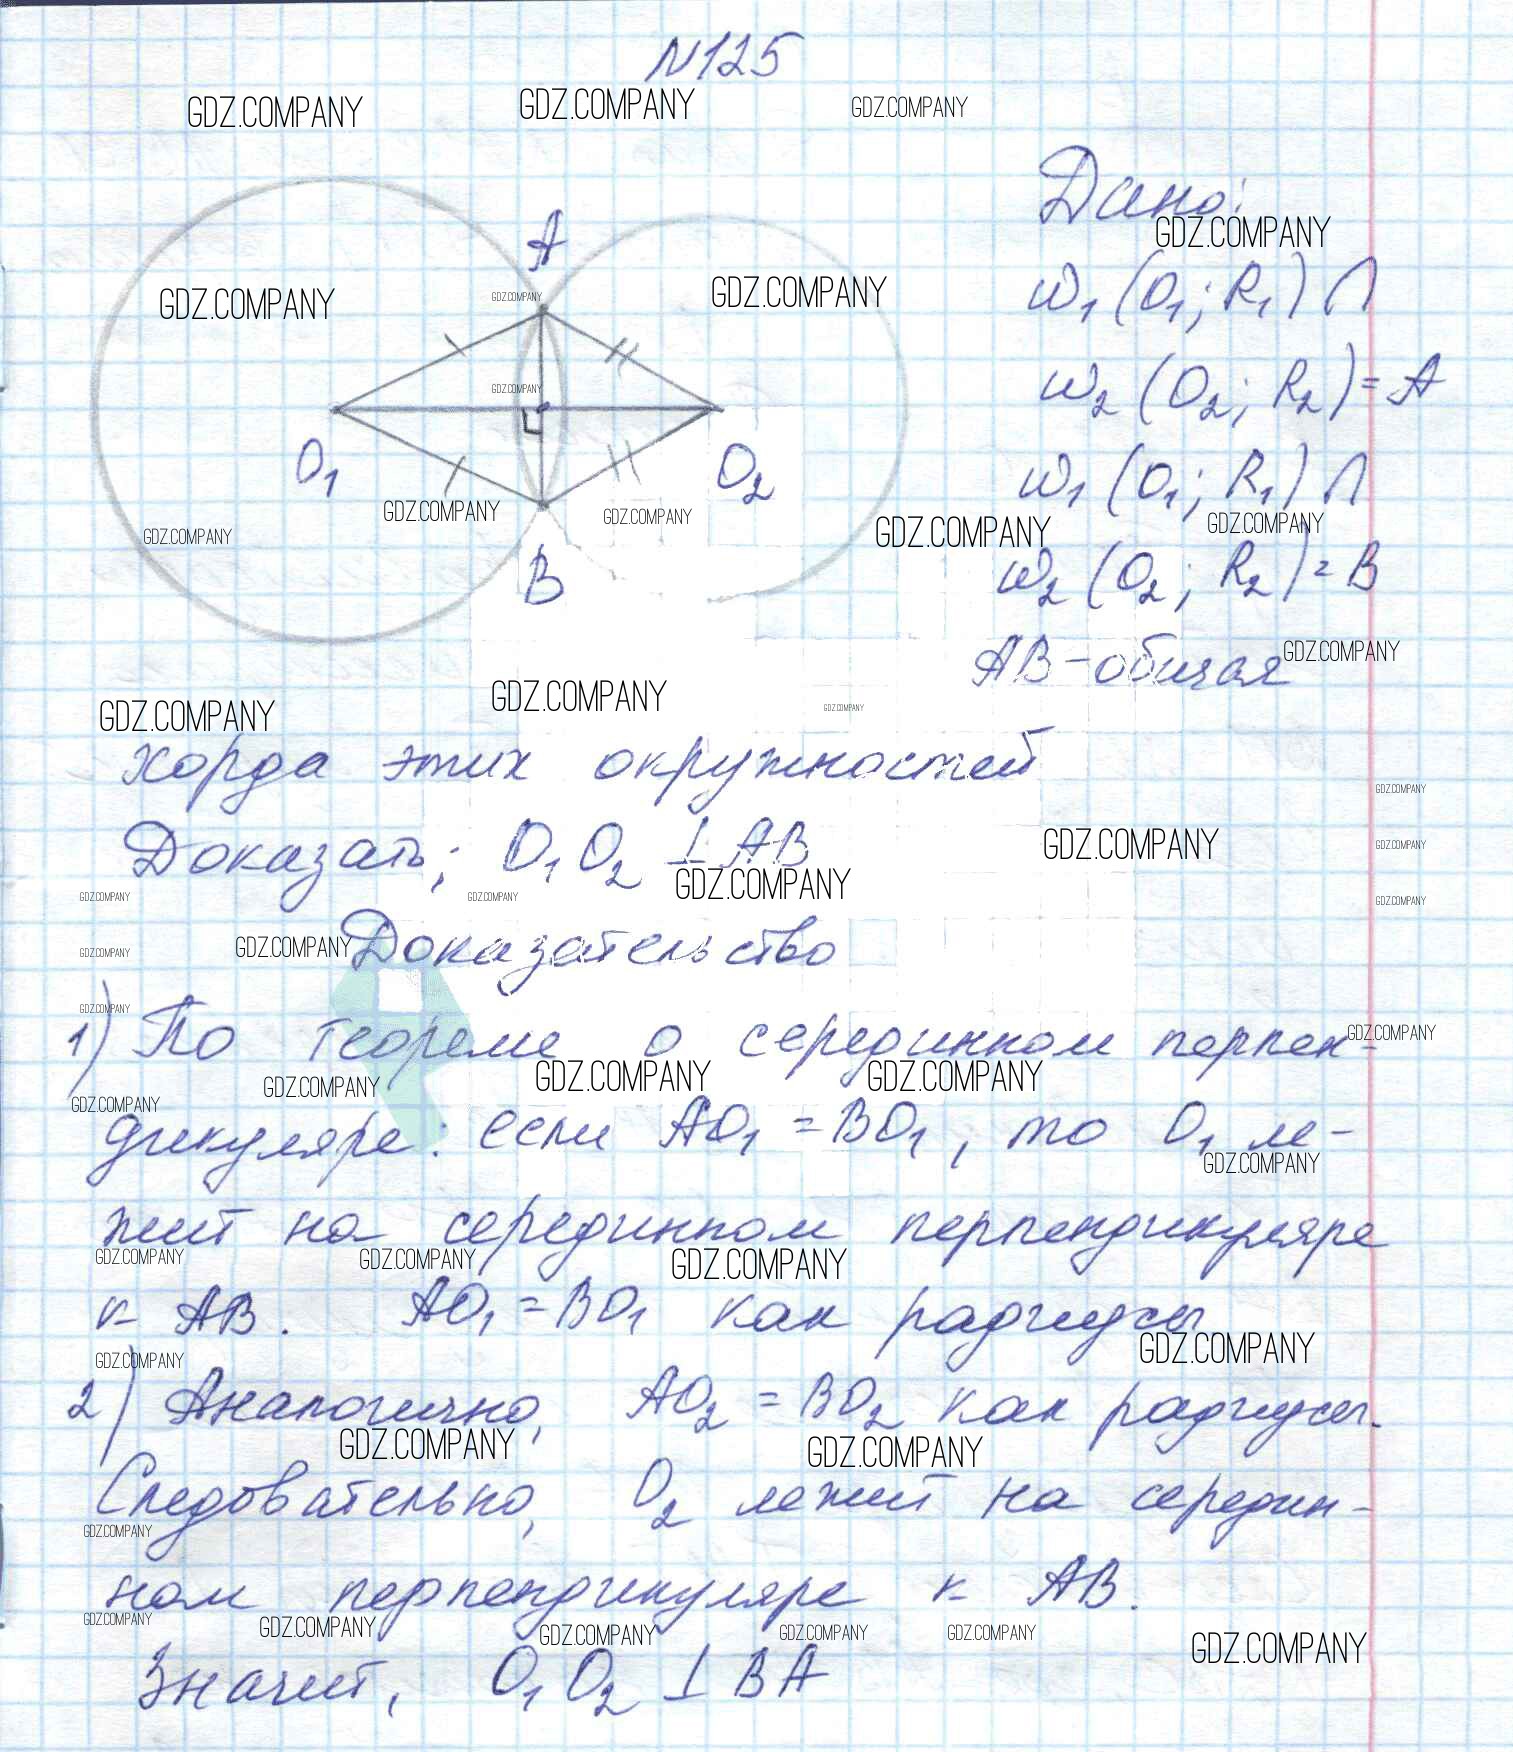 N125
A
O₁
O₂
B
Дано:
w₁ (O₁; R₁) ∩
w₂ (O₂; R₂) = A
w₁ (O₁; R₁) ∩
w₂ (O₂; R₂) = B
AB - общая
хорда этих окружностей
Доказать: O₁O₂ ⊥ AB
Доказательство
1) По теореме о серединном перпен-
дикуляре: если AO₁ = BO₁, то O₁ ле-
жит на серединном перпендикуляре
к AB. AO₁ = BO₁ как радиусы
2) Аналогично, AO₂ = BO₂ как радиусы.
Следовательно, O₂ лежит на середин-
ном перпендикуляре к AB.
Значит, O₁O₂ ⊥ BA
GDZ.COMPANY